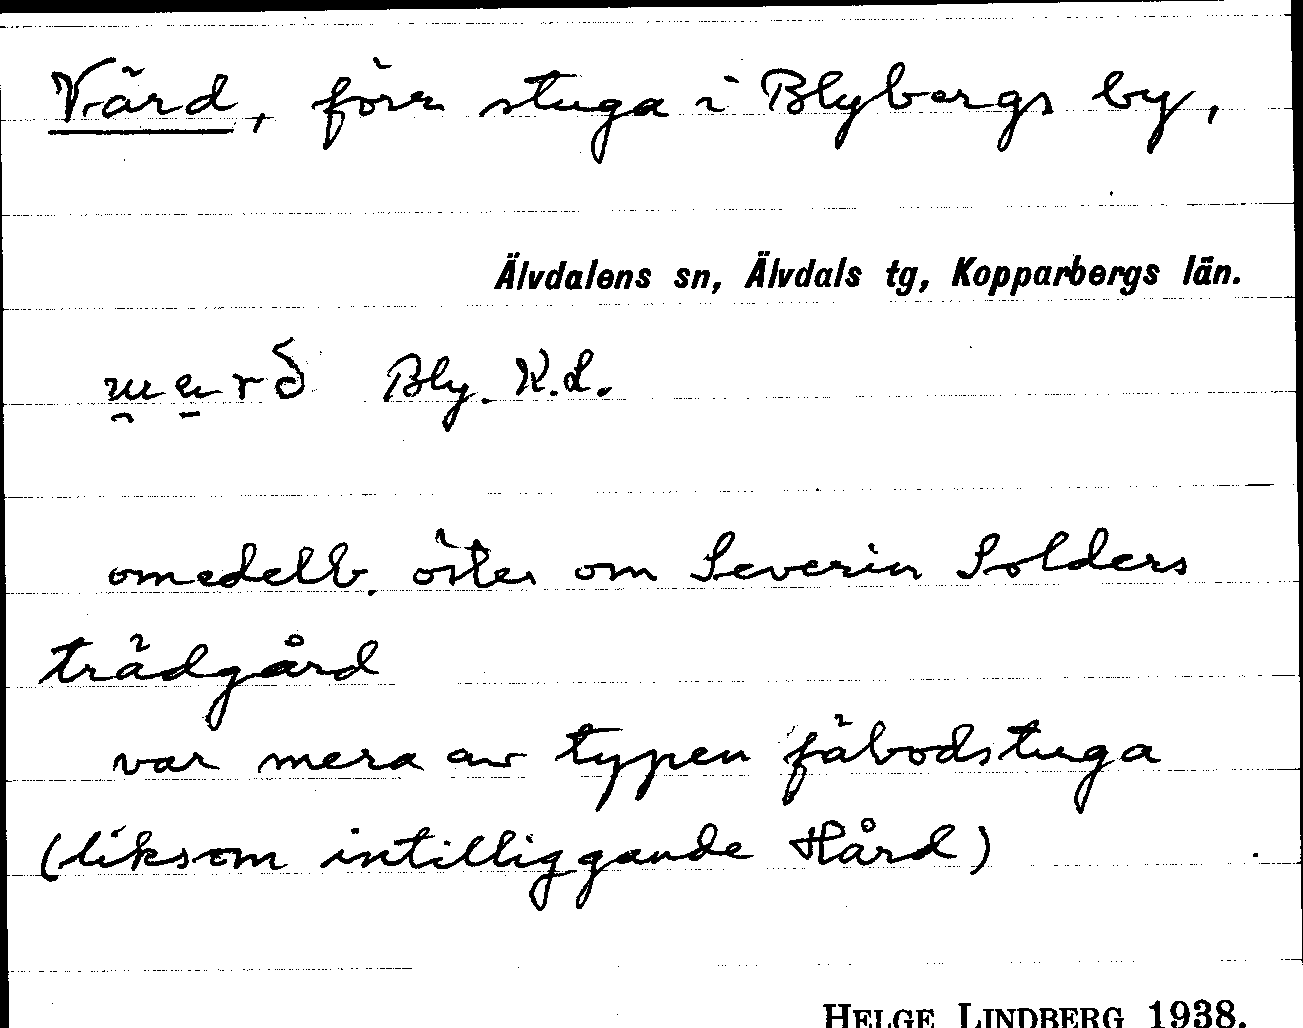 Värd, förr stuga i Blybergs by,
Älvdalens sn, Älvdals tg, Kopparbergs län.
Bly. K.L.
omedelb. öster om Severin Solders
trädgård
var mera av typen fäbodstuga
(liksom intilliggande Hård)
HELGE LINDBERG 1938.